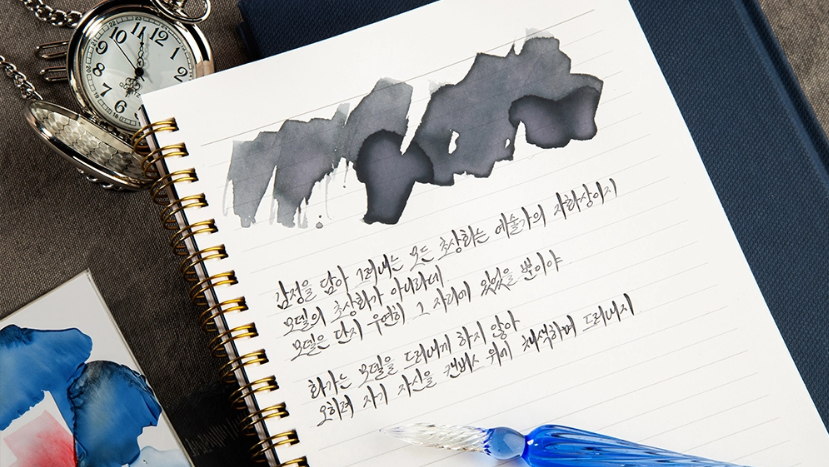 11 12 1 2 3 4 5 6 7 8 9 10
QUARTZ
감정을 담아 그려내는 모든 초상화는 예술가의 자화상이지
모델의 초상화가 아니라네
모델은 단지 우연히 그 자리에 있었을 뿐이야
화가는 모델을 드러내게 하지 않아
오히려 자기 자신을 캔버스 위에 채색하며 드러내지